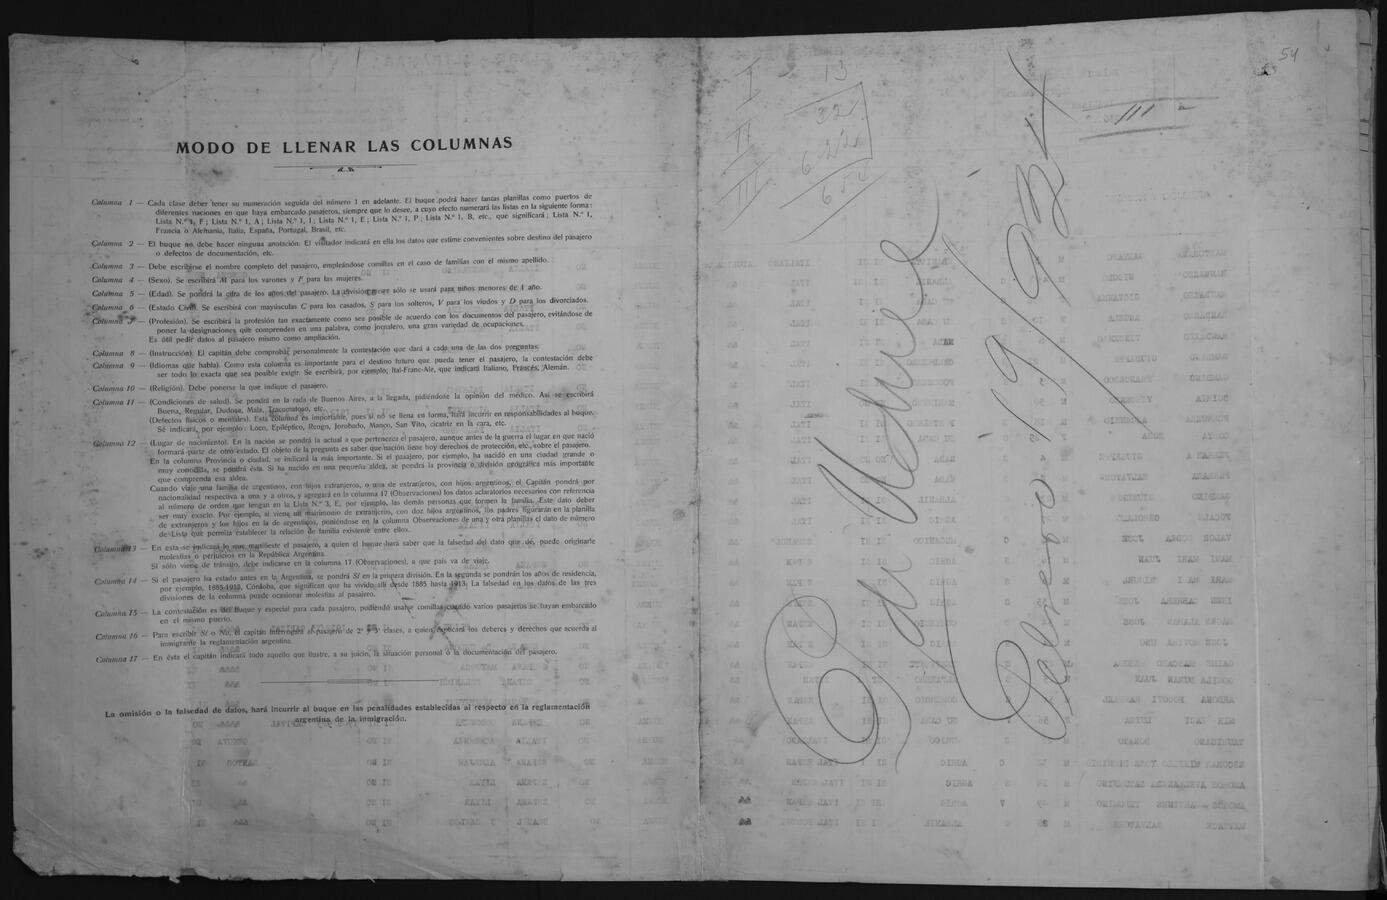 MODO DE LLENAR LAS COLUMNAS
Columna 1 — Cada clase deber tener su numeración seguida del número 1 en adelante. El buque podrá hacer tantas planillas como puertos de
diferentes naciones en que haya embarcado pasajeros, siempre que lo desee, a cuyo efecto numerará las listas en la siguiente forma:
Lista N.º 1, F; Lista N.º 1, A; Lista N.º 1, I; Lista N.º 1, E; Lista N.º 1, P; Lista N.º 1, B, etc., que significará; Lista N.º 1,
Francia o Alemania, Italia, España, Portugal, Brasil, etc.
Columna 2 — El buque no debe hacer ninguna anotación. El visitador indicará en ella los datos que estime convenientes sobre destino del pasajero
o defectos de documentación, etc.
Columna 3 — Debe escribirse el nombre completo del pasajero, empleándose comillas en el caso de familias con el mismo apellido.
Columna 4 — (Sexo). Se escribirá M para los varones y F para las mujeres.
Columna 5 — (Edad). Se pondrá la cifra de los años del pasajero. La división sólo se usará para niños menores de 1 año.
Columna 6 — (Estado Civil). Se escribirá con mayúsculas C para los casados, S para los solteros, V para los viudos y D para los divorciados.
Columna 7 — (Profesión). Se escribirá la profesión tan exactamente como sea posible de acuerdo con los documentos del pasajero, evitándose de
poner la designaciones que comprenden en una palabra, como jornalero, una gran variedad de ocupaciones.
Es útil pedir datos al pasajero mismo como ampliación.
Columna 8 — (Instrucción). El capitán debe comprobar personalmente la contestación que dará a cada una de las dos preguntas.
Columna 9 — (Idiomas que habla). Como esta columna es importante para el destino futuro que pueda tener el pasajero, la contestación debe
ser todo lo exacta que sea posible exigir. Se escribirá, por ejemplo, Ital-Franc-Ale, que indicará Italiano, Francés, Alemán.
Columna 10 — (Religión). Debe ponerse la que indique el pasajero.
Columna 11 — (Condiciones de salud). Se pondrá en la rada de Buenos Aires, a la llegada, pidiéndose la opinión del médico. Así se escribirá
Buena, Regular, Dudosa, Mala, Tracomatoso, etc.
(Defectos físicos o mentales). Esta columna es importante, pues si no se llena en forma, hará incurrir en responsabilidades al buque.
Sé indicará, por ejemplo: Loco, Epiléptico, Rengo, Jorobado, Manco, San Vito, cicatriz en la cara, etc.
Columna 12 — (Lugar de nacimiento). En la nación se pondrá la actual a que pertenezca el pasajero, aunque antes de la guerra el lugar en que nació
formará parte de otro estado. El objeto de la pregunta es saber qué nación tiene hoy derechos de protección, etc., sobre el pasajero.
En la columna Provincia o ciudad, se indicará la más importante. Si el pasajero, por ejemplo, ha nacido en una ciudad grande o
muy conocida, se pondrá ésta. Si ha nacido en una pequeña aldea, se pondrá la provincia o división geográfica más importante
que comprenda esa aldea.
Cuando viaje una familia de argentinos, con hijos extranjeros, o una de extranjeros, con hijos argentinos, el Capitán pondrá por
nacionalidad respectiva a una y a otros, y agregará en la columna 17 (Observaciones) los datos aclaratorios necesarios con referencia
al número de orden que tengan en la Lista N.º 3, E, por ejemplo, las demás personas que formen la familia. Este dato deber
ser muy exacto. Por ejemplo, si viene un matrimonio de extranjeros, con doz hijos argentinos, los padres figurarán en la planilla
de extranjeros y los hijos en la de argentinos, poniéndose en la columna Observaciones de una y otra planillas el dato de número
de Lista que permita establecer la relación de familia existente entre ellos.
Columna 13 — En esta se indicará lo que manifieste el pasajero, a quien el buque hará saber que la falsedad del dato que dé, puede originarle
molestias o perjuicios en la República Argentina.
Si sólo viene de tránsito, debe indicarse en la columna 17 (Observaciones), a que país va de viaje.
Columna 14 — Si el pasajero ha estado antes en la Argentina, se pondrá Sí en la primera división. En la segunda se pondrán los años de residencia,
por ejemplo, 1885-1913, Córdoba, que significan que ha vivido allí desde 1885 hasta 1913. La falsedad en los datos de las tres
divisiones de la columna puede ocasionar molestias al pasajero.
Columna 15 — La contestación es del buque y especial para cada pasajero, pudiendo usarse comillas cuando varios pasajeros se hayan embarcado
en el mismo puerto.
Columna 16 — Para escribir Sí o No, el capitán interrogará al pasajero de 2ª y 3ª clases, a quien explicará los deberes y derechos que acuerda al
inmigrante la reglamentación argentina.
Columna 17 — En ésta el capitán indicará todo aquello que ilustre, a su juicio, la situación personal o la documentación del pasajero.
La omisión o la falsedad de datos, hará incurrir al buque en las penalidades establecidas al respecto en la reglamentación
argentina de la inmigración.
54
I
II
III
13
32
622
654
III
Febrero 19/932